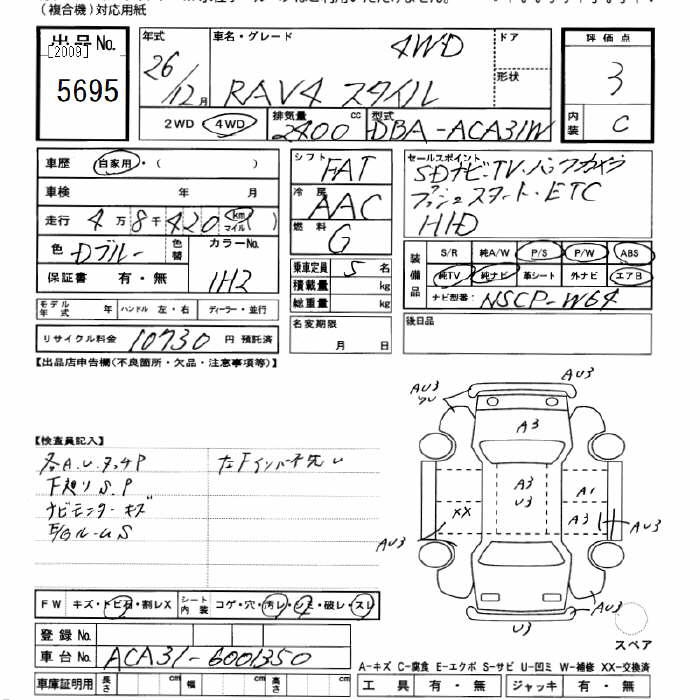 (複合機)対応用紙
出品No.
[2009]
5695
年式
26/12月
車名・グレード
4WD
RAV4 スタイル
ドア
形状
2WD 4WD
排気量
2400 cc
型式
DBA-ACA31W
評価点
3
内装
C
車歴 自家用・( )
車検 年 月
走行 4万8千420 km マイル
色 Dブルー 色替 カラーNo.
1H2
保証書 有・無
モデル年式 年 ハンドル 左・右 ディーラー・並行
リサイクル料金 10730 円 預託済
シフト FAT
冷房 AAC
燃料 G
乗車定員 5 名
積載量 kg
総重量 kg
名変期限
月 日
セールスポイント
SDナビ・TV・バックカメラ
プッシュスタート・ETC
HID
装備品
S/R 純A/W P/S P/W ABS
純TV 純ナビ 革シート 外ナビ エアB
ナビ型番 NSCP-W64
後日品
【出品店申告欄(不良箇所・欠品・注意事項等)】
【検査員記入】
各A.U.タッチP
下廻りS.P
ナビモニターキズ
E/GルームS
左Fインパネ先U
AU3
AU3
A3
A3
U3
XX
A1
A3
AU3
AU3
AU3
U3
スペア
FW キズ・トビ石・割レX シート内装 コゲ・穴・汚レ・シミ・破レ・スレ
登録No.
車台No. ACA31-6001350
車庫証明用 長さ cm 幅 cm 高さ cm
A-キズ C-腐食 E-エクボ S-サビ U-凹ミ W-補修 XX-交換済
工具 有・無 ジャッキ 有・無